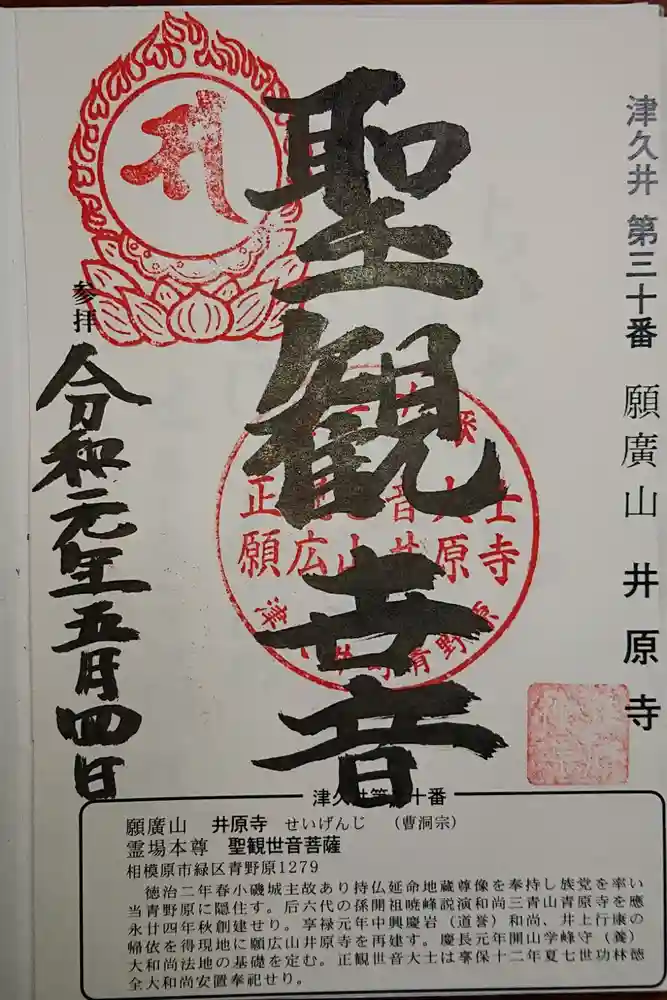 津久井 第三十番 願廣山 井原寺
聖観世音
参拝
令和元年五月四日
正観世音大士
願広山井原寺
津久井第三十番
願廣山 井原寺 せいげんじ (曹洞宗)
霊場本尊 聖観世音菩薩
相模原市緑区青野原1279
徳治二年春小磯城主故あり持仏延命地蔵尊像を奉持し族党を率い
当青野原に隠住す。后六代の孫開祖暁峰説演和尚三青山青原寺を應
永廿四年秋創建せり。享禄元年中興慶岩(道誉)和尚、井上行康の
帰依を得現地に願広山井原寺を再建す。慶長元年開山学峰守(養)
大和尚法地の基礎を定む。正観世音大士は享保十二年夏七世功林徳
全大和尚安置奉祀せり。